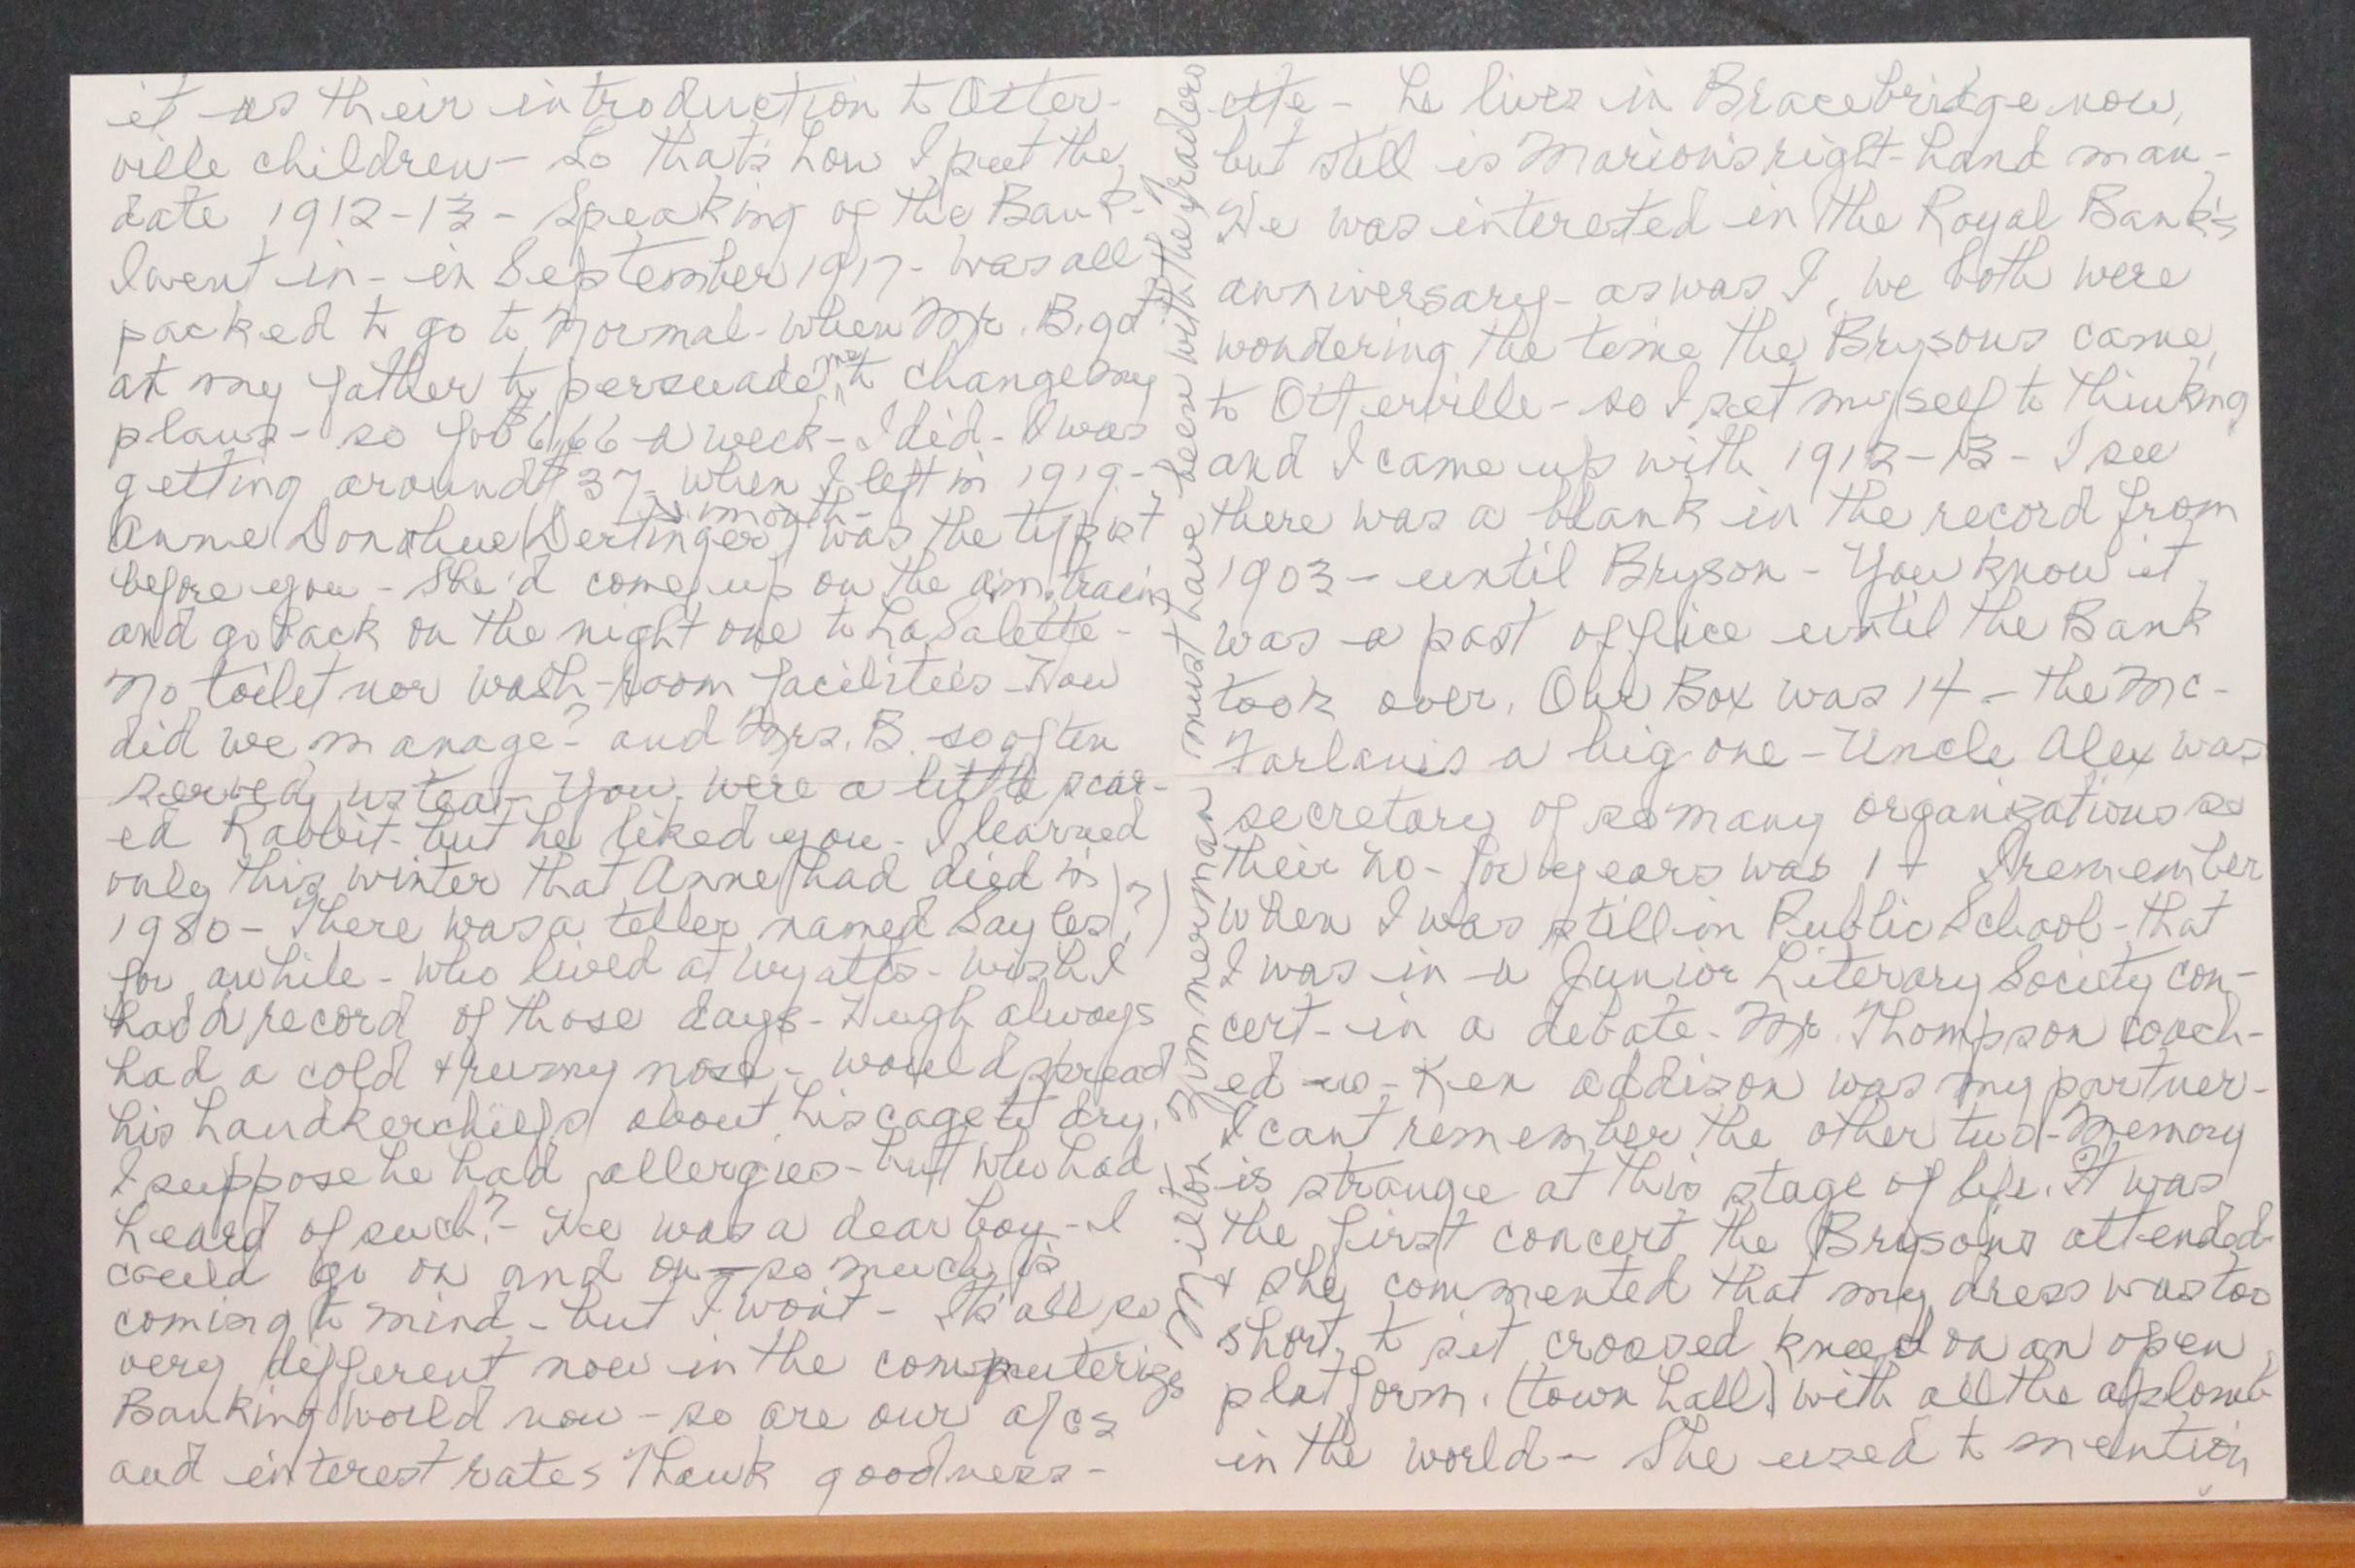 it as their introduction to Otter-
ville children - So that's how I put the
date 1912-13 - Speaking of the Bank -
I went in - in September 1917 - was all
packed to go to Normal - when Mr. B. got
at my father to persuade me to change my
plans - so for $6.66 a week - I did - I was
getting around $37 - when I left in 1919 -
a month -
Anne Donohue (Dertinger) was the typist
before you - She'd come up on the a.m. train
and go back on the night one to LaSalette -
No toilet nor wash-room facilities - How
did we manage? - and Mrs. B. so often
served us tea - You were a little scar-
ed Rabbit - but he liked you - I learned
only this winter that Anne had died in
1980 - There was a teller named Sayles (?)
for awhile - who lived at Wyatts - wish I
had a record of those days - Hugh always
had a cold + runny nose - would spread
his handkerchiefs about his cage to dry.
I suppose he had allergies - but who had
heard of such? - He was a dear boy - I
could go on and on - so much is
coming to mind - but I won't - It's all so
very different now in the computerize
Banking world now - so are our a/cs
and interest rates Thank goodness -
Milton Zimmerman must have been with the Traders
ette - he lives in Bracebridge now,
but still is Marion's right-hand man -
He was interested in the Royal Bank's
anniversary - as was I, we both were
wondering the time the Brysons came
to Otterville - so I set myself to thinking
and I came up with 1912-13 - I see
there was a blank in the record from
1903 - until Bryson - You know it
was a post office until the Bank
took over. Our Box was 14 - the Mc-
Farlanes a big one - Uncle Alex was
secretary of so many organizations so
their no - for years was 1 + I remember
when I was still in Public School - that
I was in a Junior Literary Society con-
cert - in a debate - Mr. Thompson coach-
ed us - Ken Addison was my partner -
I cant remember the other two - Memory
is strange at this stage of life. It was
the first concert the Brysons attended
+ she commented that my dress was too
short, to sit crossed kneed on an open
platform. (town hall) with all the aplomb
in the world - She used to mention